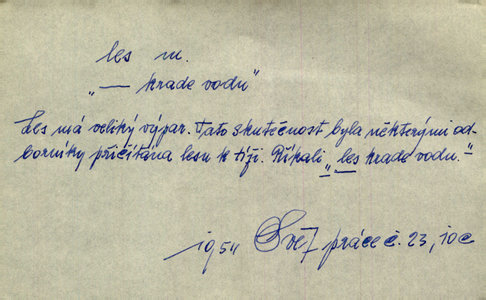 les m.
„— krade vodu"
Les má veliký výpar. Tato skutečnost byla některými od-
borníky přičítána lesu k tíži. Říkali „les krade vodu."
1954 práce č. 23, 10c